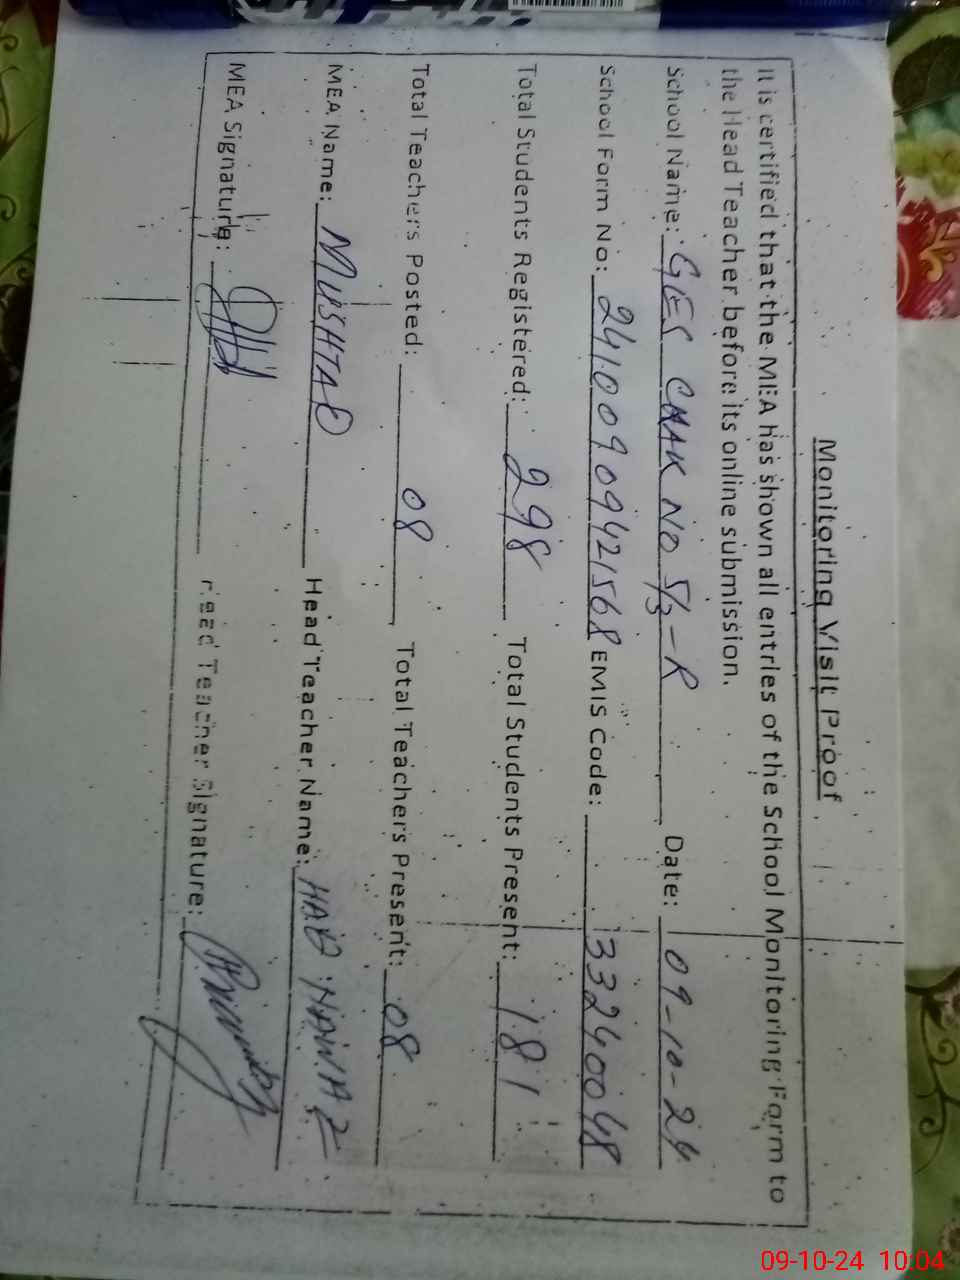 Monitoring Visit Proof
It is certified that the MEA has shown all entries of the School Monitoring Form to
the Head Teacher before its online submission.
School Name: GES CHAK NO 5/3-R Date: 09-10-24
School Form No: 24100909421568 EMIS Code: 33240048
Total Students Registered: 298 Total Students Present: 181
Total Teachers Posted: 08 Total Teachers Present: 08
MEA Name: MUSHTAQ Head Teacher Name: HAQ NAWAZ
MEA Signature: Head Teacher Signature:
09-10-24 10:04